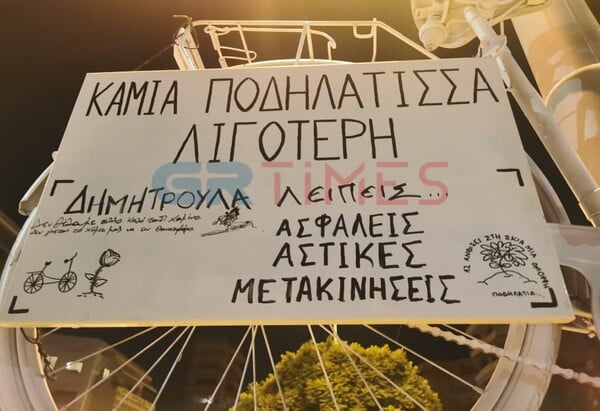 ΚΑΜΙΑ ΠΟΔΗΛΑΤΙΣΣΑ
ΛΙΓΟΤΕΡΗ
GRTIMES
ΔΗΜΗΤΡΟΥΛΑ ΛΕΙΠΕΙΣ...
ΑΣΦΑΛΕΙΣ
ΑΣΤΙΚΕΣ
ΜΕΤΑΚΙΝΗΣΕΙΣ
ΣΤΗ ΣΚΙΑ ΜΙΑ
ΠΟΔΗΛΑΤΙΑ..